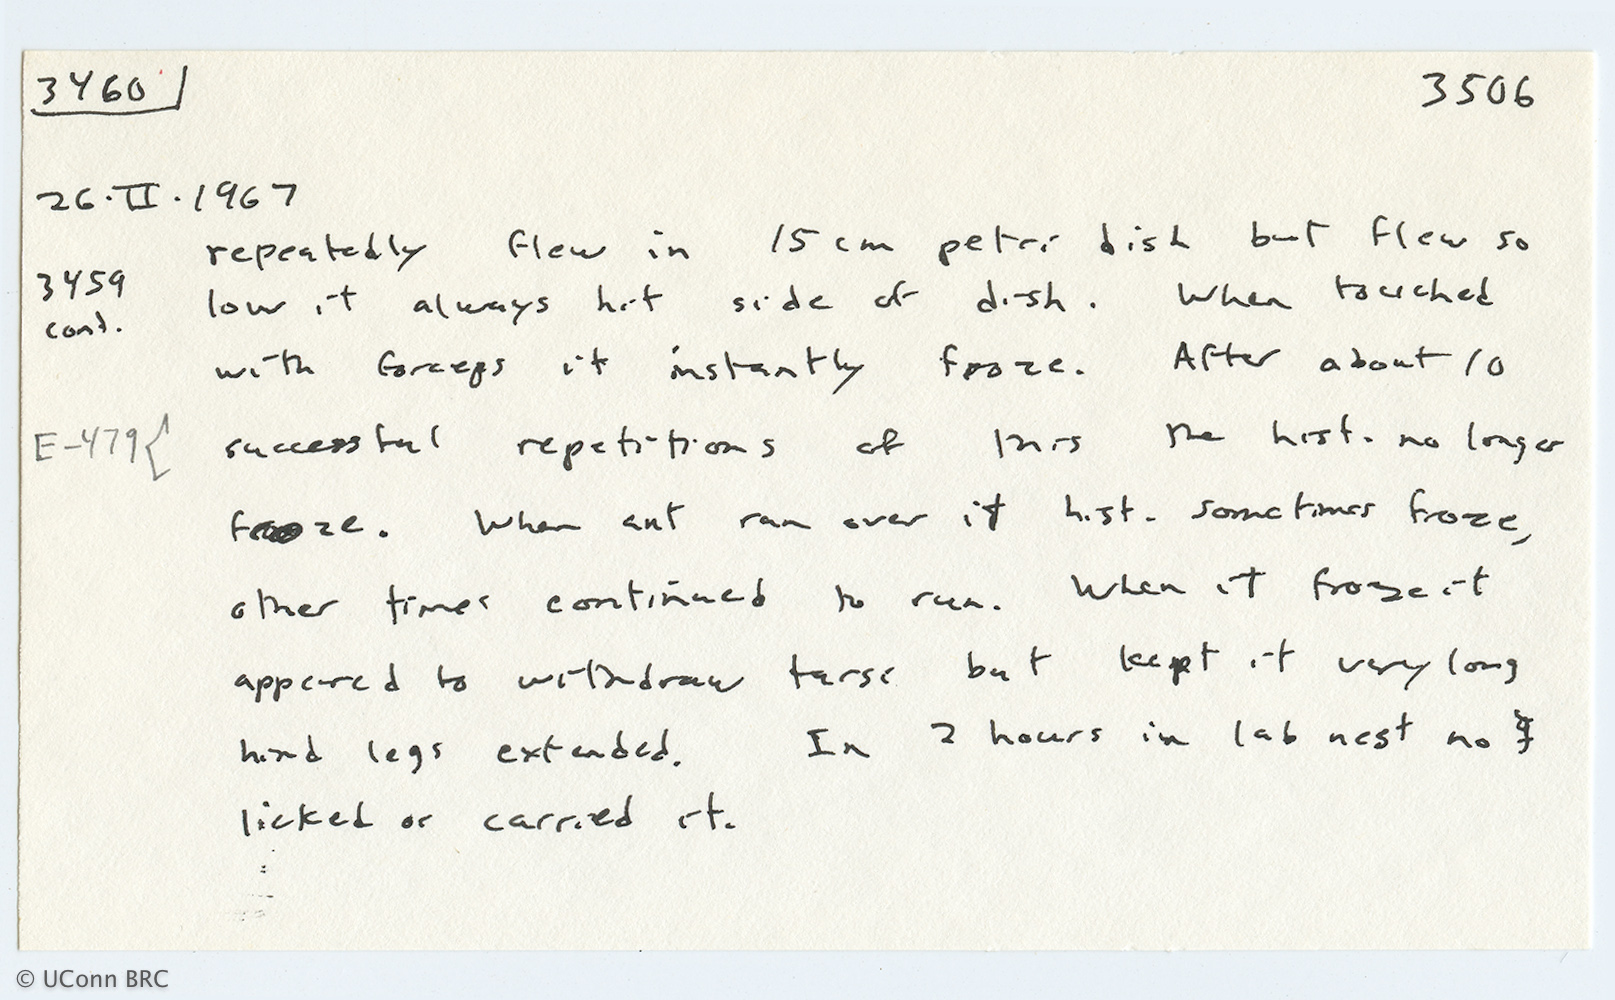 3460 3506
26.II.1967
repeatedly flew in 15 cm petri dish but flew so
3459
low it always hit side of dish. When touched
cont.
with forceps it instantly froze. After about 10
E-479{ successful repetitions of this the hist. no longer
froze. When ant ran over it hist. sometimes froze,
other times continued to run. When it froze it
appeared to withdraw tarsi but kept it very long
hind legs extended. In 2 hours in lab nest no ☿
licked or carried it.
© UConn BRC